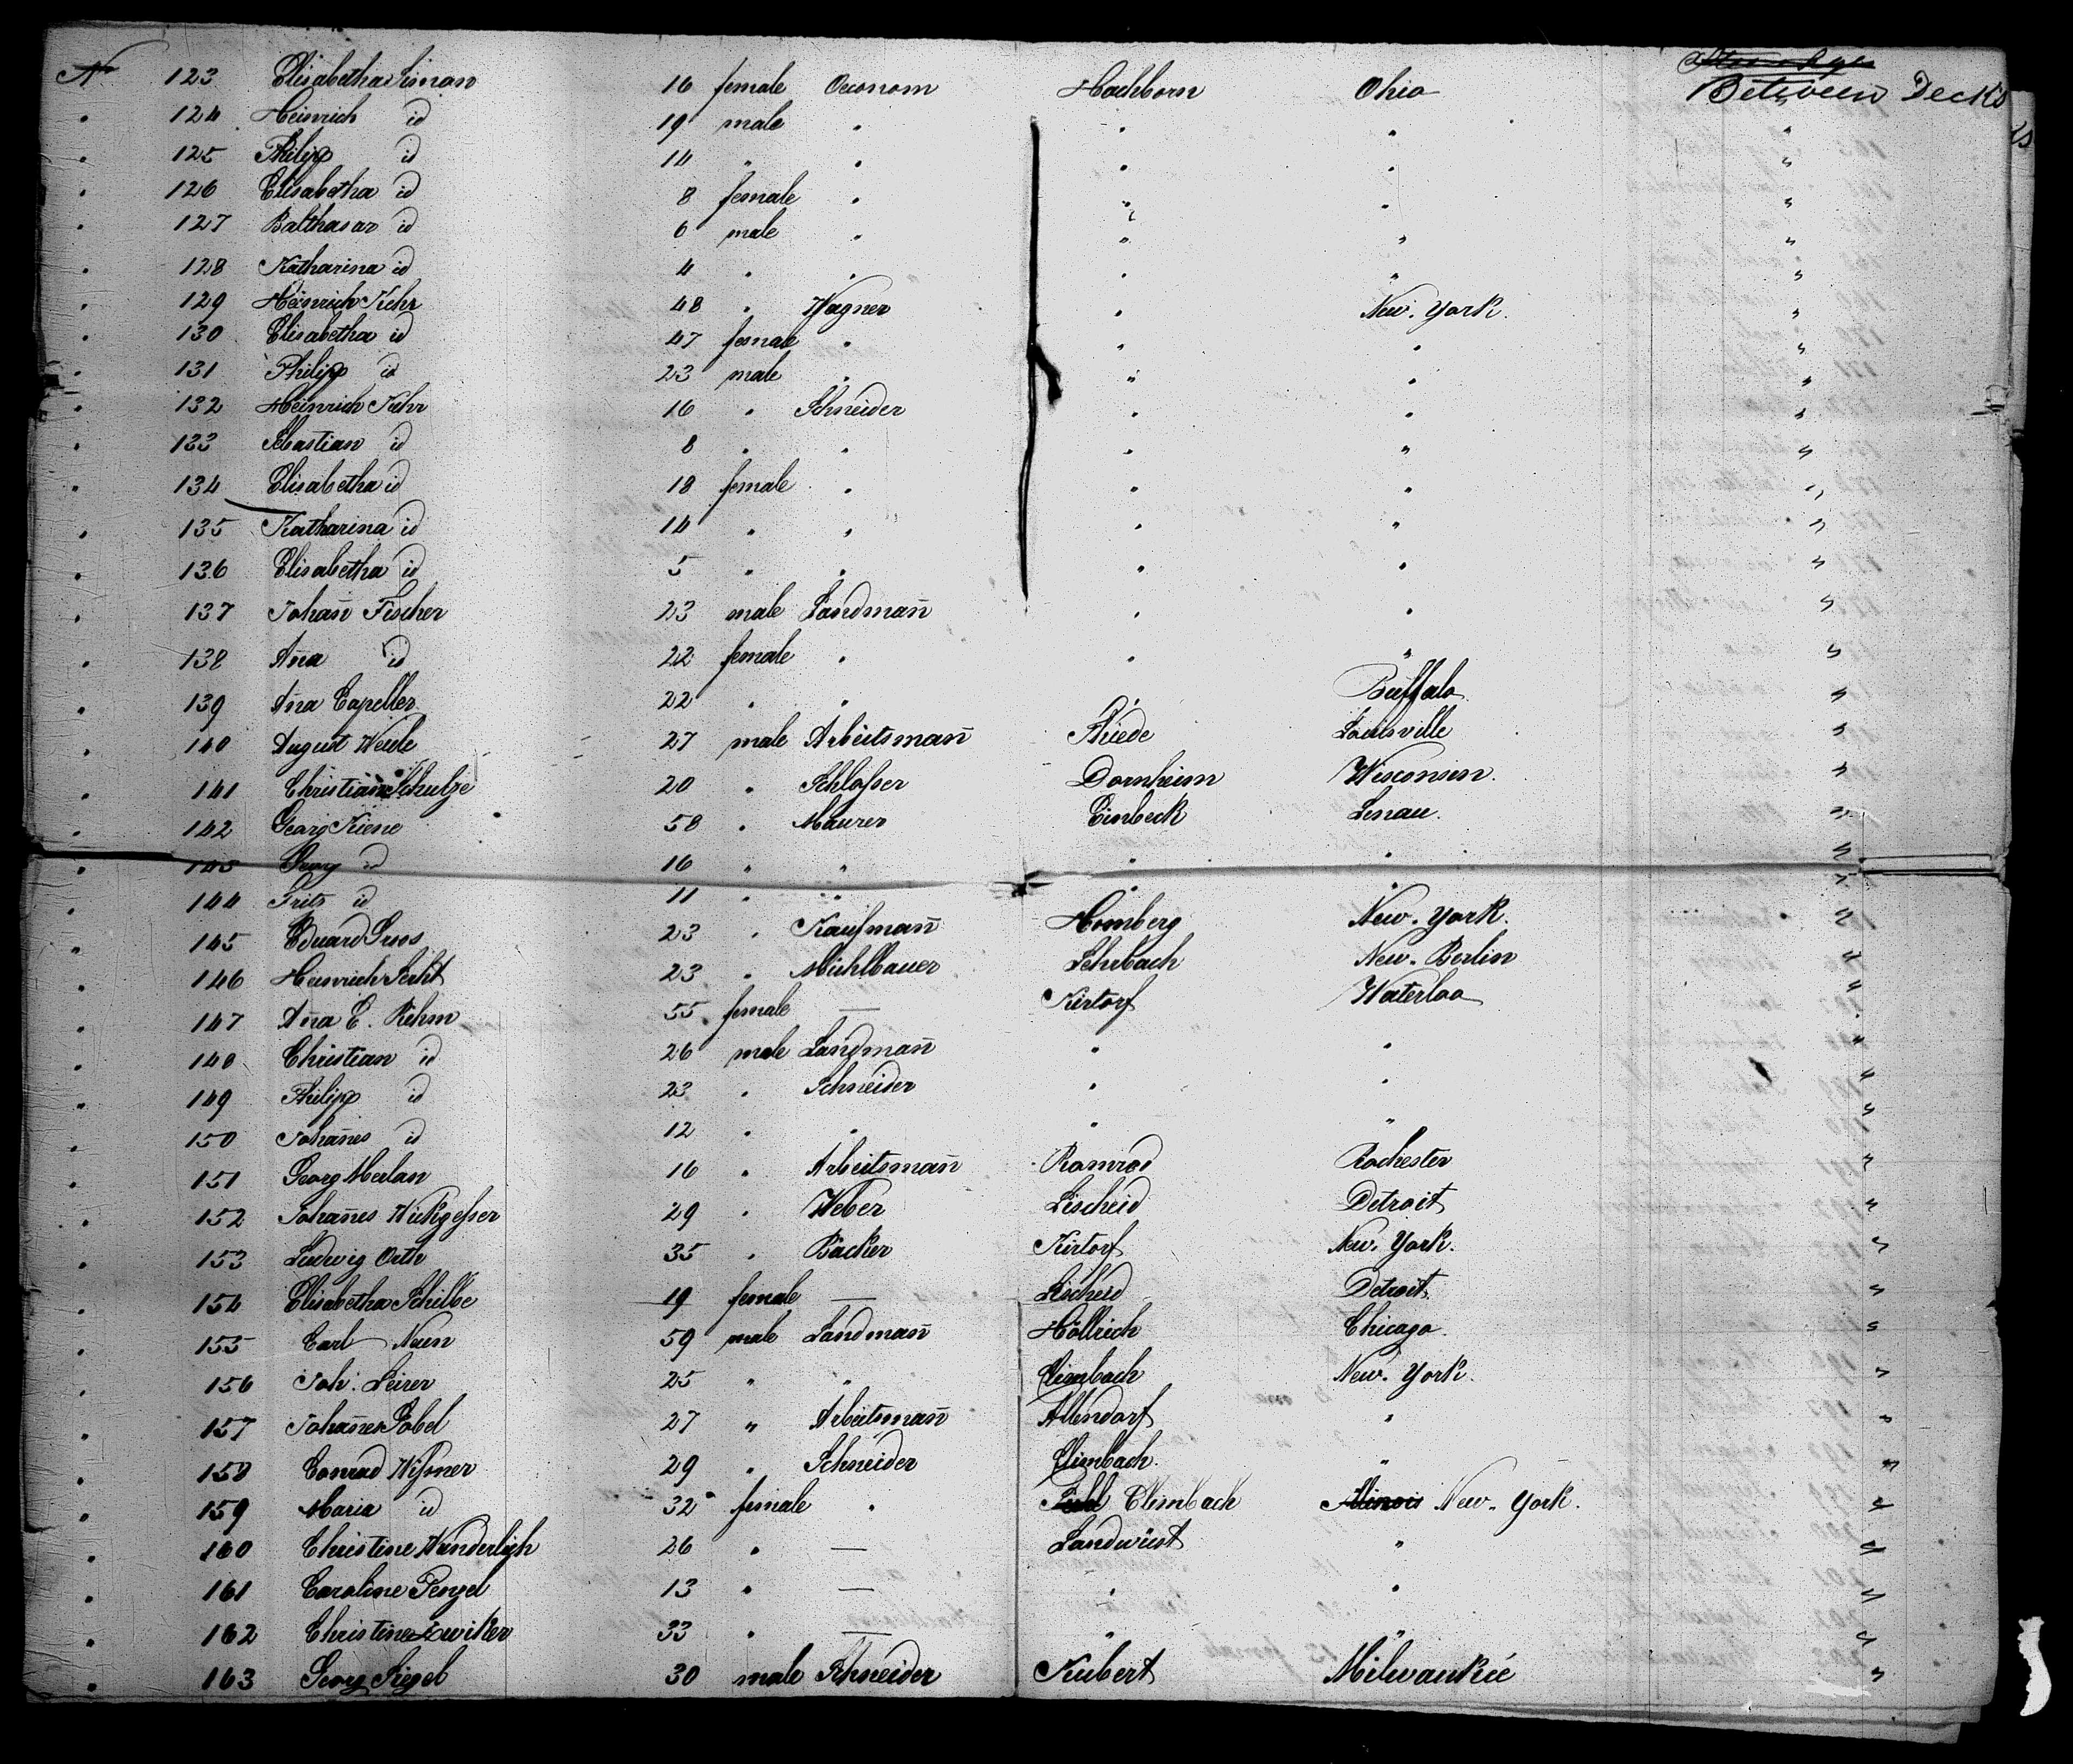 No 123 Elisabetha Siman 16 female Oeconom Hachborn Ohio Between Decks
" 124 Heinrich id 19 male " " " "
" 125 Philipp id 14 " " " " "
" 126 Elisabetha id 8 female " " " "
" 127 Balthasar id 6 male " " " "
" 128 Katharina id 4 " " " " "
" 129 Heinrich Kehr 48 " Wagner " New-York. "
" 130 Elisabetha id 47 female " " " "
" 131 Philipp id 23 male " " " "
" 132 Heinrich Kehr 16 " Schneider " " "
" 133 Sebastian id 8 " " " " "
" 134 Elisabetha id 18 female " " " "
" 135 Katharina id 14 " " " " "
" 136 Elisabetha id 5 " " " " "
" 137 Johan̄ Fischer 23 male Landman̄ " " "
" 138 An̄a id 22 female " " " "
" 139 An̄a Capeller 22 " " " Buffalo "
" 140 August Weule 27 male Arbeitsman̄ Rhiede Louisville "
" 141 Christian Schulze 20 " Schlosser Dornheim Wisconsin. "
" 142 Georg Kiene 58 " Maurer Einbeck Lenau. "
" 143 Georg id 16 " " " " "
" 144 Fritz id 11 " " " " "
" 145 Eduard Groos 23 " Kaufman̄ Homberg New-York. "
" 146 Heinrich Secht 23 " Mühlbauer Lehrbach New-Berlin "
" 147 An̄a E. Rihm 55 female — Kirtorf Waterloo "
" 148 Christian id 26 male Landman̄ " " "
" 149 Philipp id 23 " Schneider " " "
" 150 Johan̄es id 12 " " " " "
" 151 Georg Merlan 16 " Arbeitsman̄ Romrod Rochester "
" 152 Johan̄es Wickgesser 29 " Weber Lischeid Detroit "
" 153 Ludwig Orth 35 " Bäcker Kirtorf New-York. "
" 154 Elisabetha Schilbe 19 female — Lischeid Detroit "
" 155 Carl Neun 59 male Landman̄ Höllrich Chicago. "
" 156 Joh. Leirer 25 " " Climbach New-York. "
" 157 Johan̄es Gobel 27 " Arbeitsman̄ Allendorf " "
" 158 Conrad Wissner 29 " Schneider Climbach. " "
" 159 Maria id 32 female " Climbach Illinois New-York. "
" 160 Christine Wunderligh 26 " — Landwüst " "
" 161 Caroline Pengel 13 " — " " "
" 162 Christine Zwiker 33 " — " " "
" 163 Georg Siegel 30 male Schneider Kubert Milwaukie "